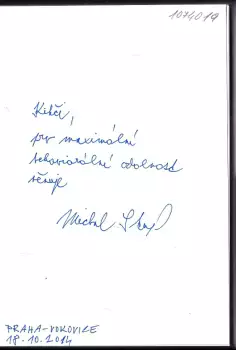 1074019
pro maximální
behaviorální odolnost
věnuje
Michal
PRAHA-VOKOVICE
18.10.2014